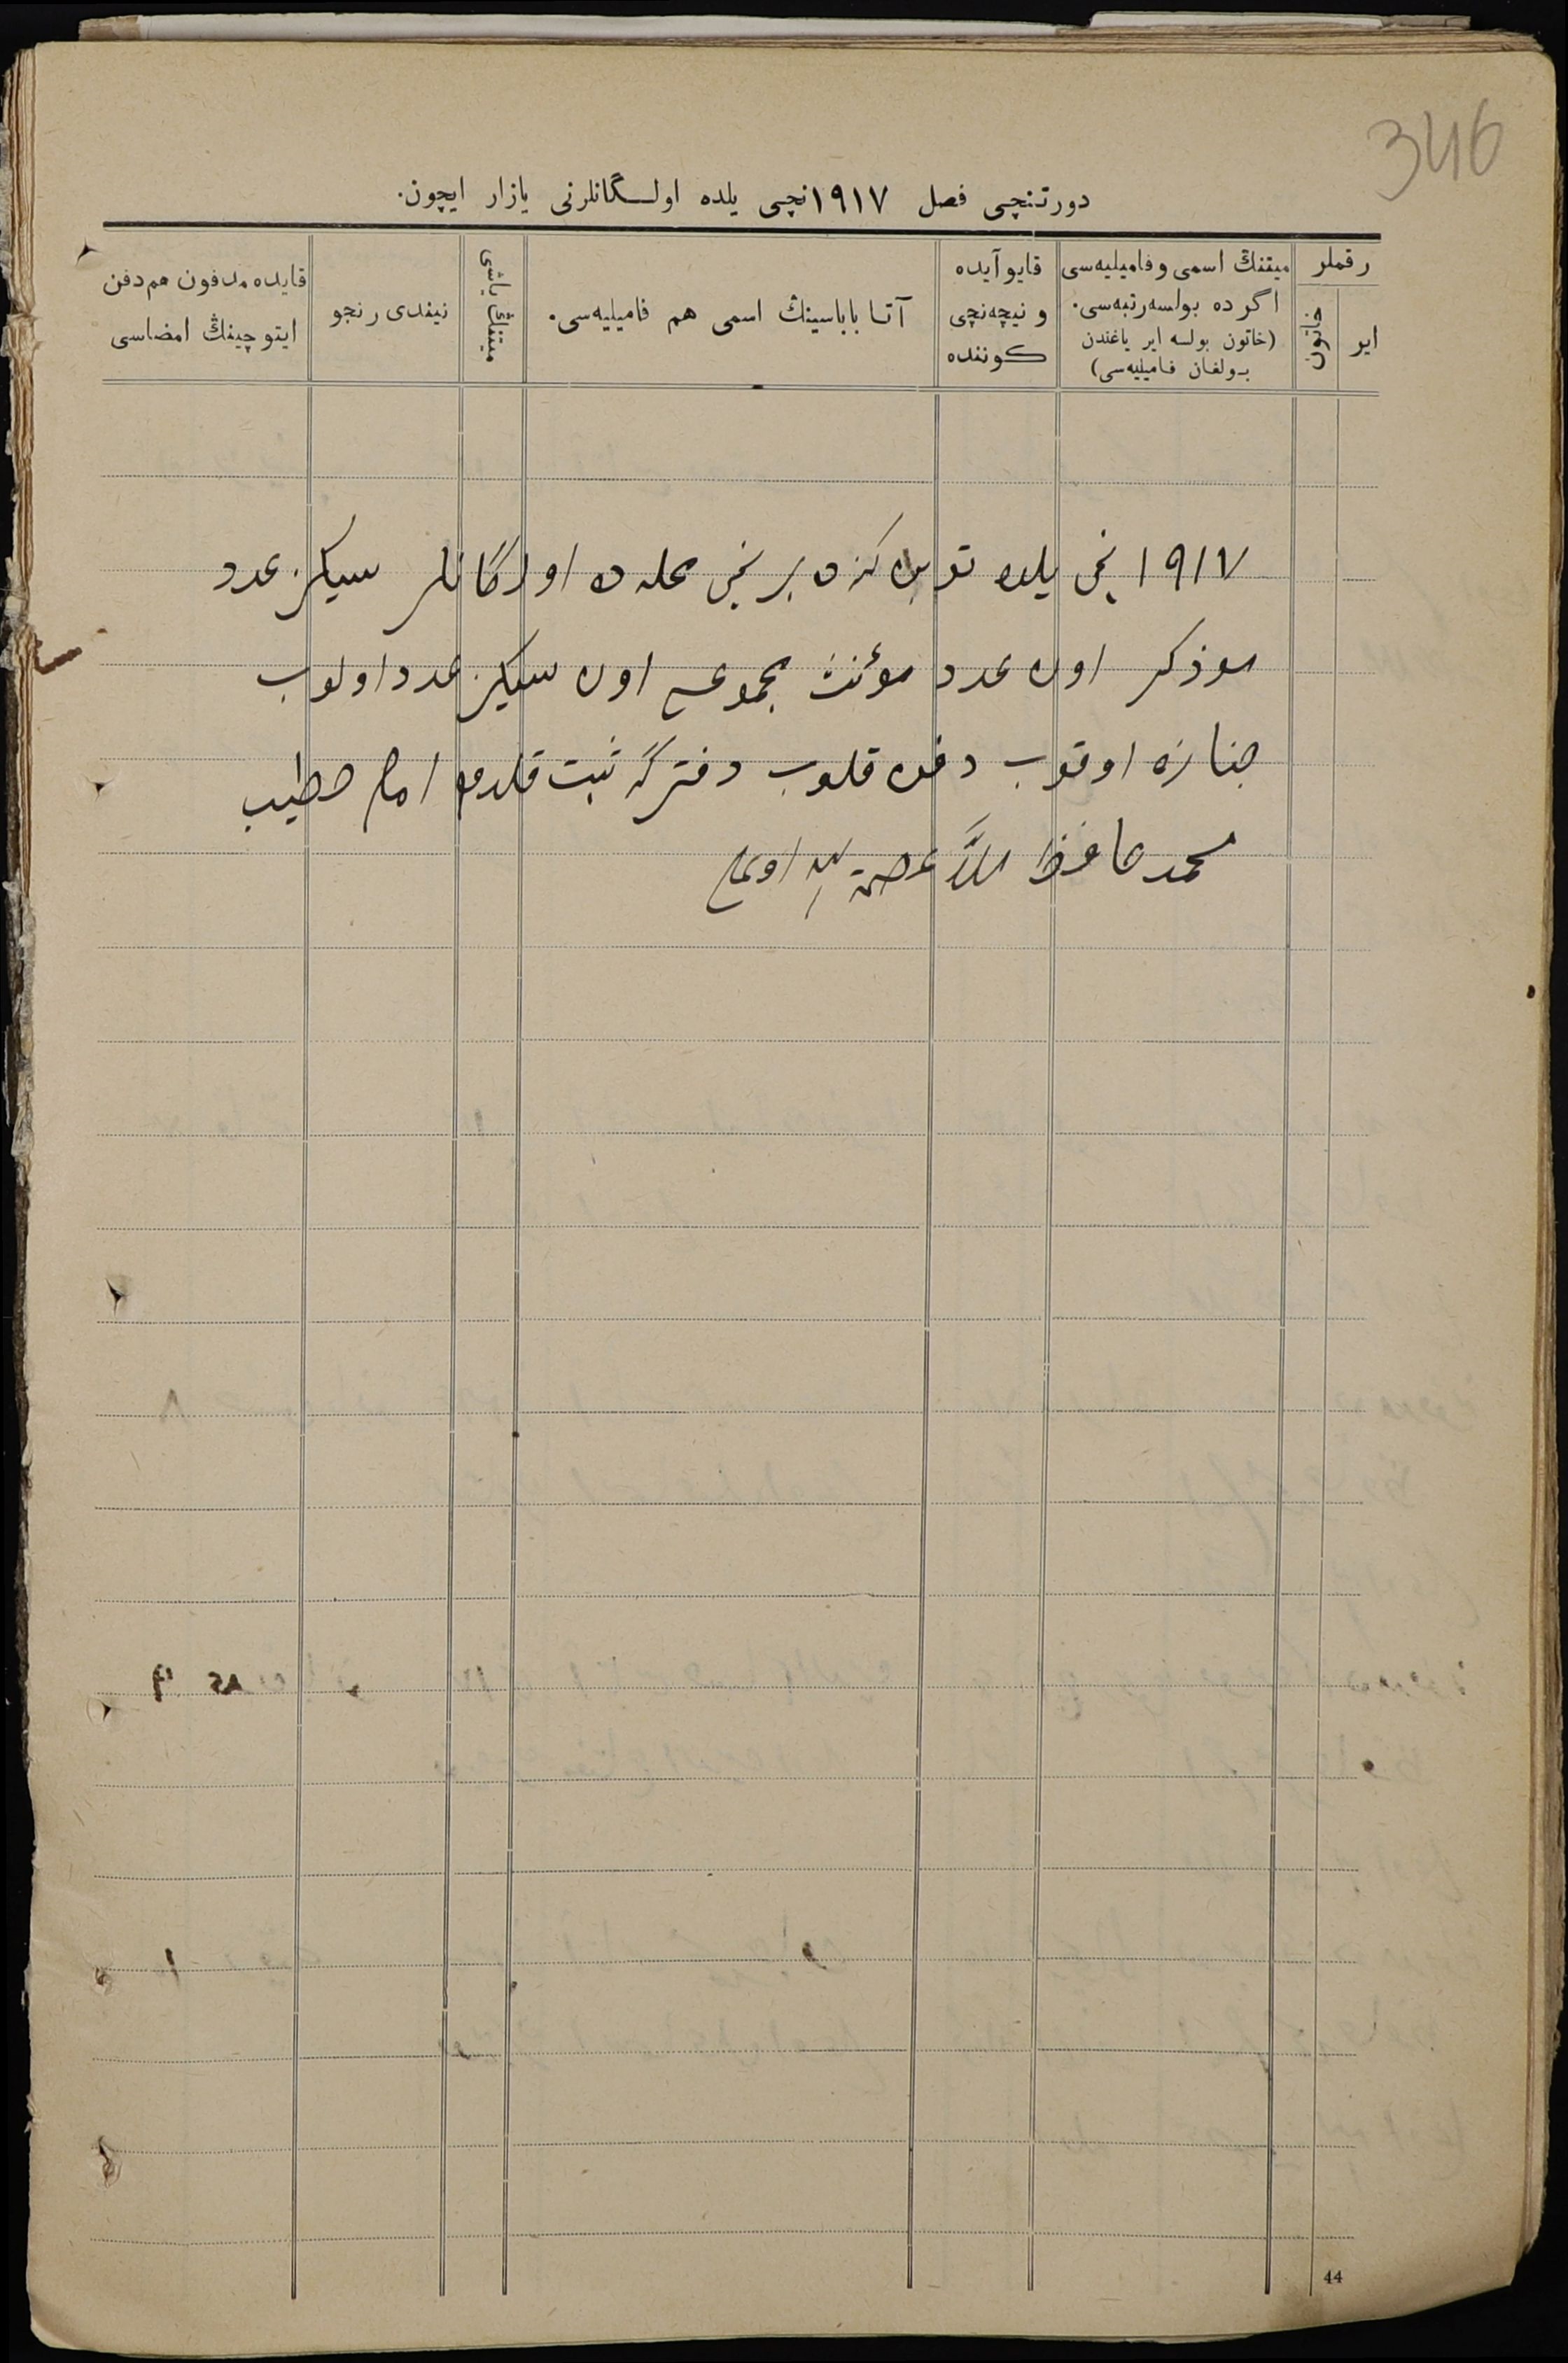 346
دورتنچی فصل ١٩١٧نچی یلده اولـــگانلرنی یازار ایچون.
رقملر
ایر
خاتون
میتنڭ اسمی و فامیلیه‌سی
اگر ده بولسه رتبه‌سی.
(خاتون بولسه ایر یاغندن
بـولغان فامیلیه‌سی)
قایو آیده
و نیچه‌نچی
كوننده
آتـا باباسینڭ اسمی هم فامیلیه‌سی.
میتنڭ یاشی
نیندی رنجو
قایده مدفون هم دفن
ایتوچینڭ امضاسی
١٩١٧ نچی یلده برنچی محله ده اولگانلر سیكز عدد
موذكر اون عدد مؤنث مجموعی اون سیكز عدد اولوب
جنازه اوقوب دفن قلوب دفترگه ثبت قلدم امام خطیب
محمد حافظ ملا عصمة الله اوغلی
44